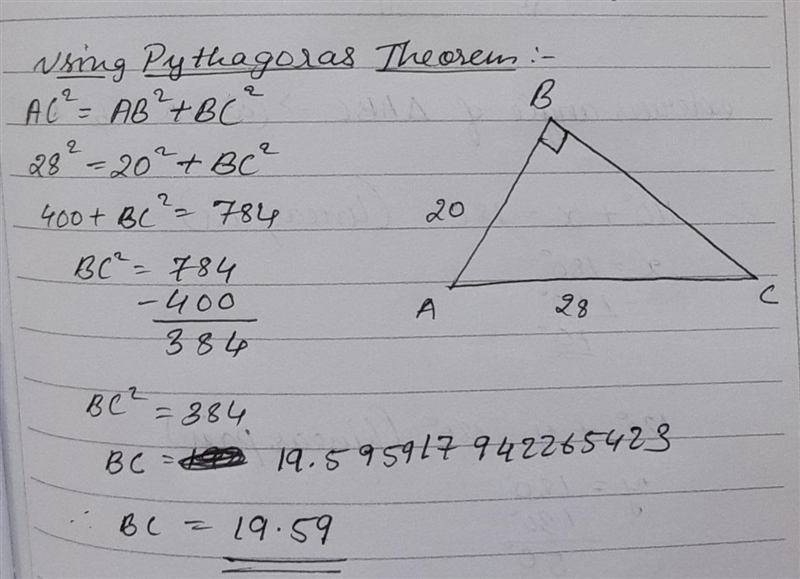 Using Pythagoras Theorem :-
AC² = AB² + BC²
28² = 20² + BC²
400 + BC² = 784
BC² = 784
- 400
384
BC² = 384
BC = 19.595917942265423
∴ BC = 19.59
B
20
A
28
C